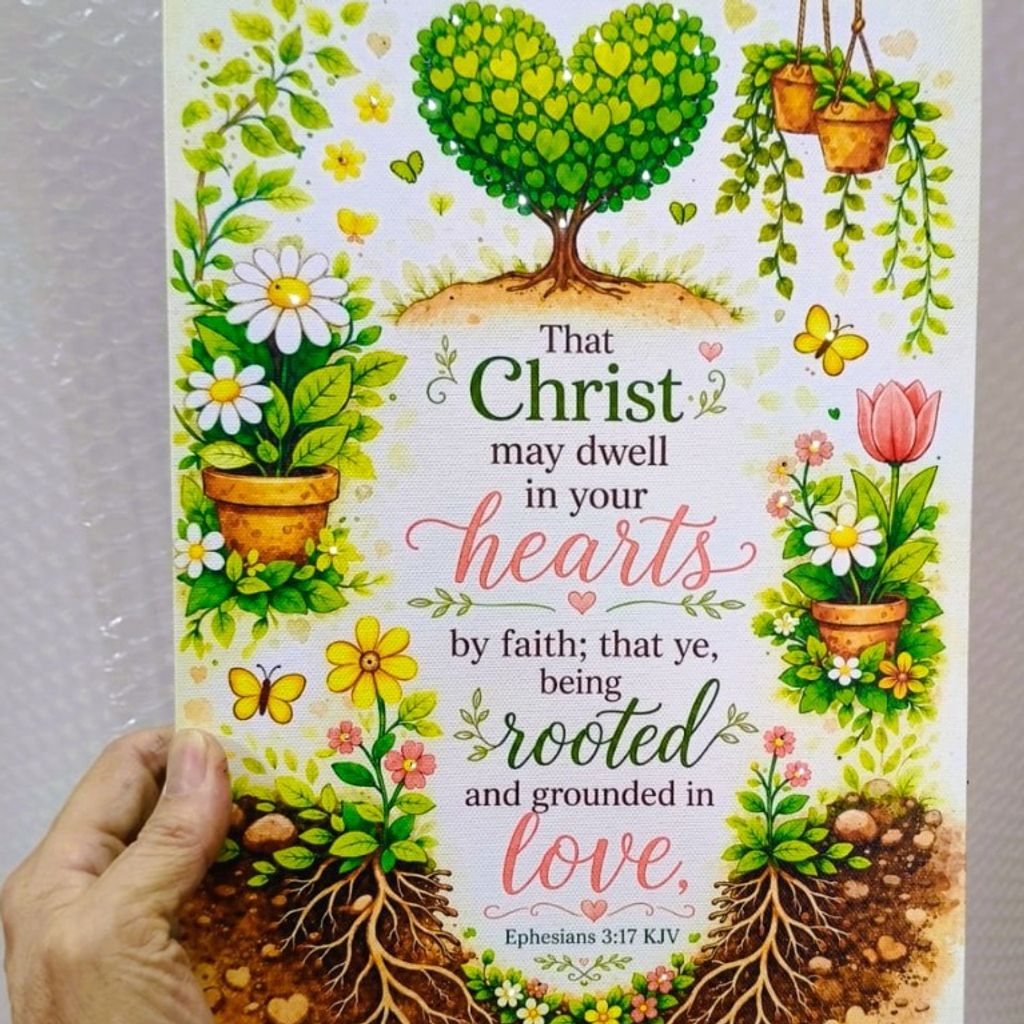 That
Christ
may dwell
in your
hearts
by faith; that ye,
being
rooted
and grounded in
love,
Ephesians 3:17 KJV